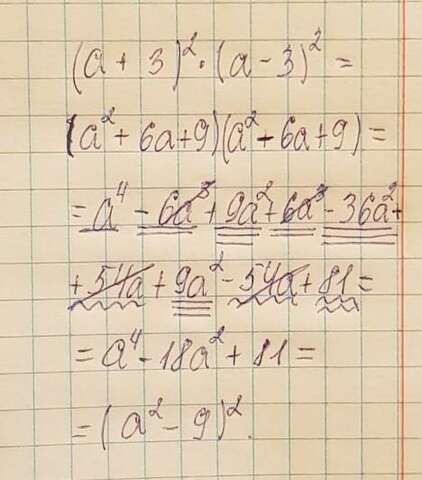 (a + 3)² · (a - 3)² =
(a² + 6a + 9)(a² + 6a + 9) =
= a⁴ - 6a³ + 9a² + 6a³ - 36a² +
+ 54a + 9a² - 54a + 81 =
= a⁴ - 18a² + 81 =
= (a² - 9)².